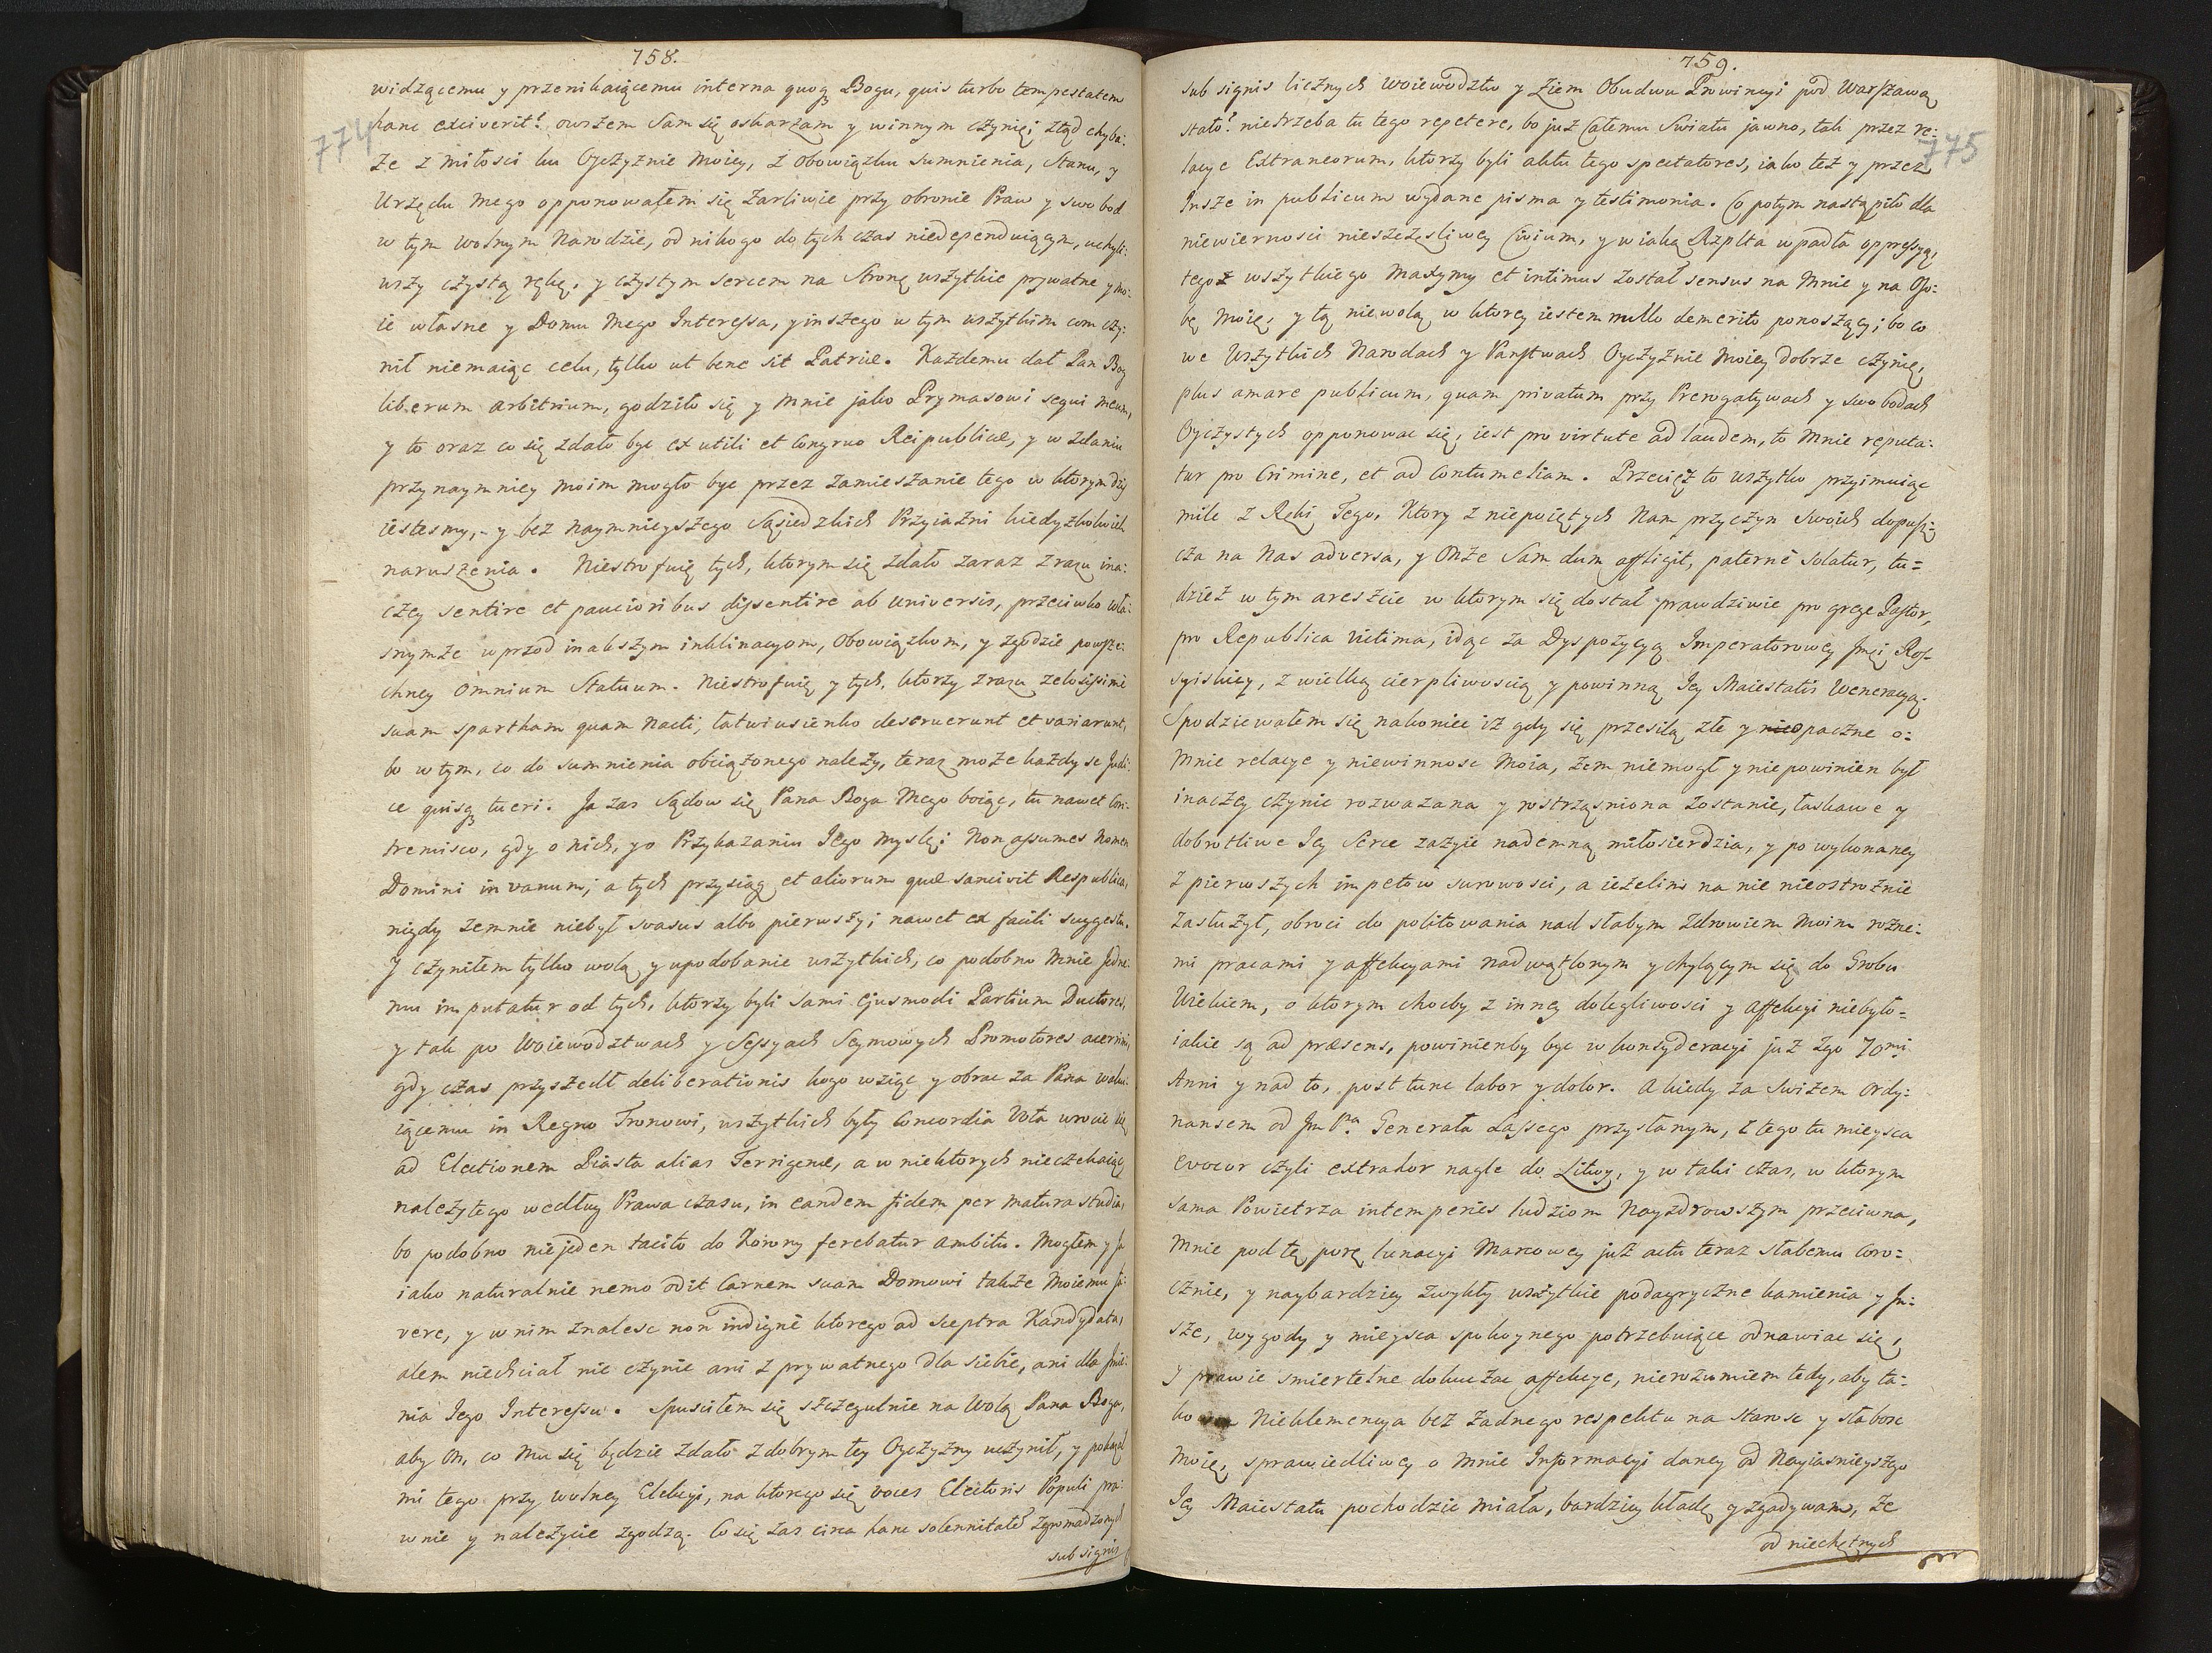 758.
widzącemu y przenikaiącemu interna quoq Bogu, quis turbo tempestatem
hanc exciverit? owszem Sam się oskarzam y winnym czynię; ztąd chyba:
774
ze z miłosci ku Oyczyznie moiey, z obowiązku sumnienia, stanu, y
Urzędu mego opponowałem się zarliwie przy obronie Praw y swobod
w tym wolnym Narodzie, od nikogo do tych czas niedependuiącym, uchyli:
wszy czystą ręką, y czystym sercem na Stronę wszytkie prywatne y mo:
ie własne y Domu mego Interessa, y inszego w tym wszytkim com czy:
nił niemaiąc celu, tylko ut bene sit Patriæ. Kazdemu dał Pan Bog
liberum arbitrium, godziło się y mnie jako Prymasowi sequi meum,
y to oraz co się zdało byc ex utili et congruo Reipublicæ, y w zdaniu
przynaymniey moim mogło byc przez zamieszanie tego w ktorym dziś
iestesmy, y bez naymnieyszego Sąsiedzkich Przyiazni kiedyzkolwiek
naruszenia. Niestrofuię tych, ktorym się zdało zaraz zrazu ina:
czey sentire et paucioribus dissentire ab universis, przeciwko wła:
snymze wprzod inakszym inklinacyom, obowiązkom, y zgodzie powsze:
chney omnium Statuum. Niestrofuię y tych, ktorzy zrazu zelosissimi
suam spartham quam nacti, łatwiusienko deseruerunt et variarunt,
bo w tym, co do sumnienia obciązonego nalezy, teraz moze kazdy se Judi:
ce quisq tueri. Ja zas Sądow się Pana Boga mego boiąc, tu nawet con:
tremisco, gdy o nich, y o Przykazaniu Jego myslę: Non assumes nomen
Domini in vanum; a tych przysiąg et aliorum quæ sancivit Respublica,
nigdy zemnie niebył svasus albo pierwszy; nawet ex facili suggestu.
Y czyniłem tylko wolą y upodobanie wszytkich, co podobno mnie Jedne:
mu imputatur od tych, ktorzy byli sami ejusmodi Partium Ductores,
y tak po Woiewodztwach y Sessyach Seymowych Promotores acerrimi,
gdy czas przyszedł deliberationis kogo wziąc y obrac za Pana waku:
iącemu in Regno Tronowi, wszytkich były concordia Vota wrocic się
ad Electionem Piasta alias Terrigenæ, a w niektorych nieczekaiąc
nalezytego według Prawa czasu, in eandem fidem per matura studia,
bo podobno niejeden tacito do Korony ferebatur ambitu. Mogłem y Ja
iako naturalnie nemo odit carnem suam Domowi takze moiemu fa:
vere, y w nim znalesc non indignè ktorego ad sceptra Kandydata,
alem niechciał nic czynic ani z prywatnego dla siebie, ani dla Jmie:
nia Jego Interessu. Spusciłem się szczegulnie na Wolą Pana Boga,
aby On, co mu się będzie zdało z dobrym tey Oyczyzny uczynił, y pokazał
mi tego przy wolney Elekcyi, na ktorego się voces Electoris Populi pra:
wnie y nalezycie zgodzą. Co się zas circa hanc solennitatem zgromadzonych
sub signis
759.
sub signis licznych Woiewodztw y Ziem Obudwu Prowincyi pod Warszawą
stało? nietrzeba tu tego repetere, bo juz całemu Swiatu jawno, tak przez re:
775
lacye Extraneorum, ktorzy byli aktu tego spectatores, iako tez y przez
Insze in publicum wydane pisma y testimonia. Co potym nastąpiło dla
niewiernosci nieszczęsliwey Civium, y w iaką Rzplta wpadła oppressyą,
tegoz wszytkiego maxymy et intimus został sensus na mnie y na Oso:
bę moię, y tą niewolą w ktorey iestem nullo demerito ponoszący; bo co
we wszytkich Narodach y Panstwach Oyczyznie moiey dobrze czynię,
plus amare publicum, quam privatum przy Prerogatywach y swobodach
Oyczystych opponowac się, iest pro virtute ad laudem, to mnie reputa:
tur pro crimine, et ad contumeliam. Przecięz to wszytko przyimuiąc
mile z Ręki Tego, Ktory z niepoiętych nam przyczyn swoich dopusz:
cza na nas adversa, y Onze Sam dum affligit, paternè solatur, tu=
dziez w tym areszcie w ktorym się dostał prawdziwie pro grege Pastor,
pro Republica victima, idąc za Dyspozycyą Imperatorowey Jmci Ros-
syiskiey, z wielką cierpliwoscią y powinną Jey Maiestatis Weneracyą.
Spodziewałem się nakoniec iz gdy się przesilą złe y opaczne o:
mnie relacye y niewinnosc moia, zem niemogł y niepowinien był
inaczey czynic rozwazana y roztrząsniona zostanie, łaskawe y
dobrotliwe Jey Serce zazyie nademną miłosierdzia, y po wykonaney
z pierwszych impetow surowosci, a iezelim na nie nieostroznie
zasłuzył, obroci do politowania nad słabym zdrowiem moim rozne:
mi pracami y affekcyami nadwątlonym y chylącym się do Grobu
Wiekiem, o ktorym chocby z inney dolegliwosci y affekcyi niebyło=
iakie są ad præsens, powinienby byc w konsyderacyi juz 2go 70mi
Anni y nad to, post tunc labor y dolor. A kiedy za swizem ordy:
nansem od Jm Pna Generała Lassego przysłanym, z tego tu mieysca
evocor czyli extrador nagle do Litwy, y w taki czas, w ktorym
sama Powietrza intemperies ludziom nayzdrowszym przeciwna,
mnie pod tę porę lunacyi Marcowey juz actu teraz słabemu coro=
cznie, y naybardziey zwykły wszytkie podagryczne kamienia y In:
sze, wygody y mieysca spokoynego potrzebuiące odnawiac się,
y prawie smiertelne dokuczac affekcye, nierozumiem tedy, aby ta:
ko Nieklemencya bez zadnego respektu na starosc y słabosc
moię, sprawiedliwey o mnie Informacyi daney od Nayiasnieyszego
Jey Maiestatu pochodzic miała, bardziey kładę y zgadywam, ze
od niechętnych